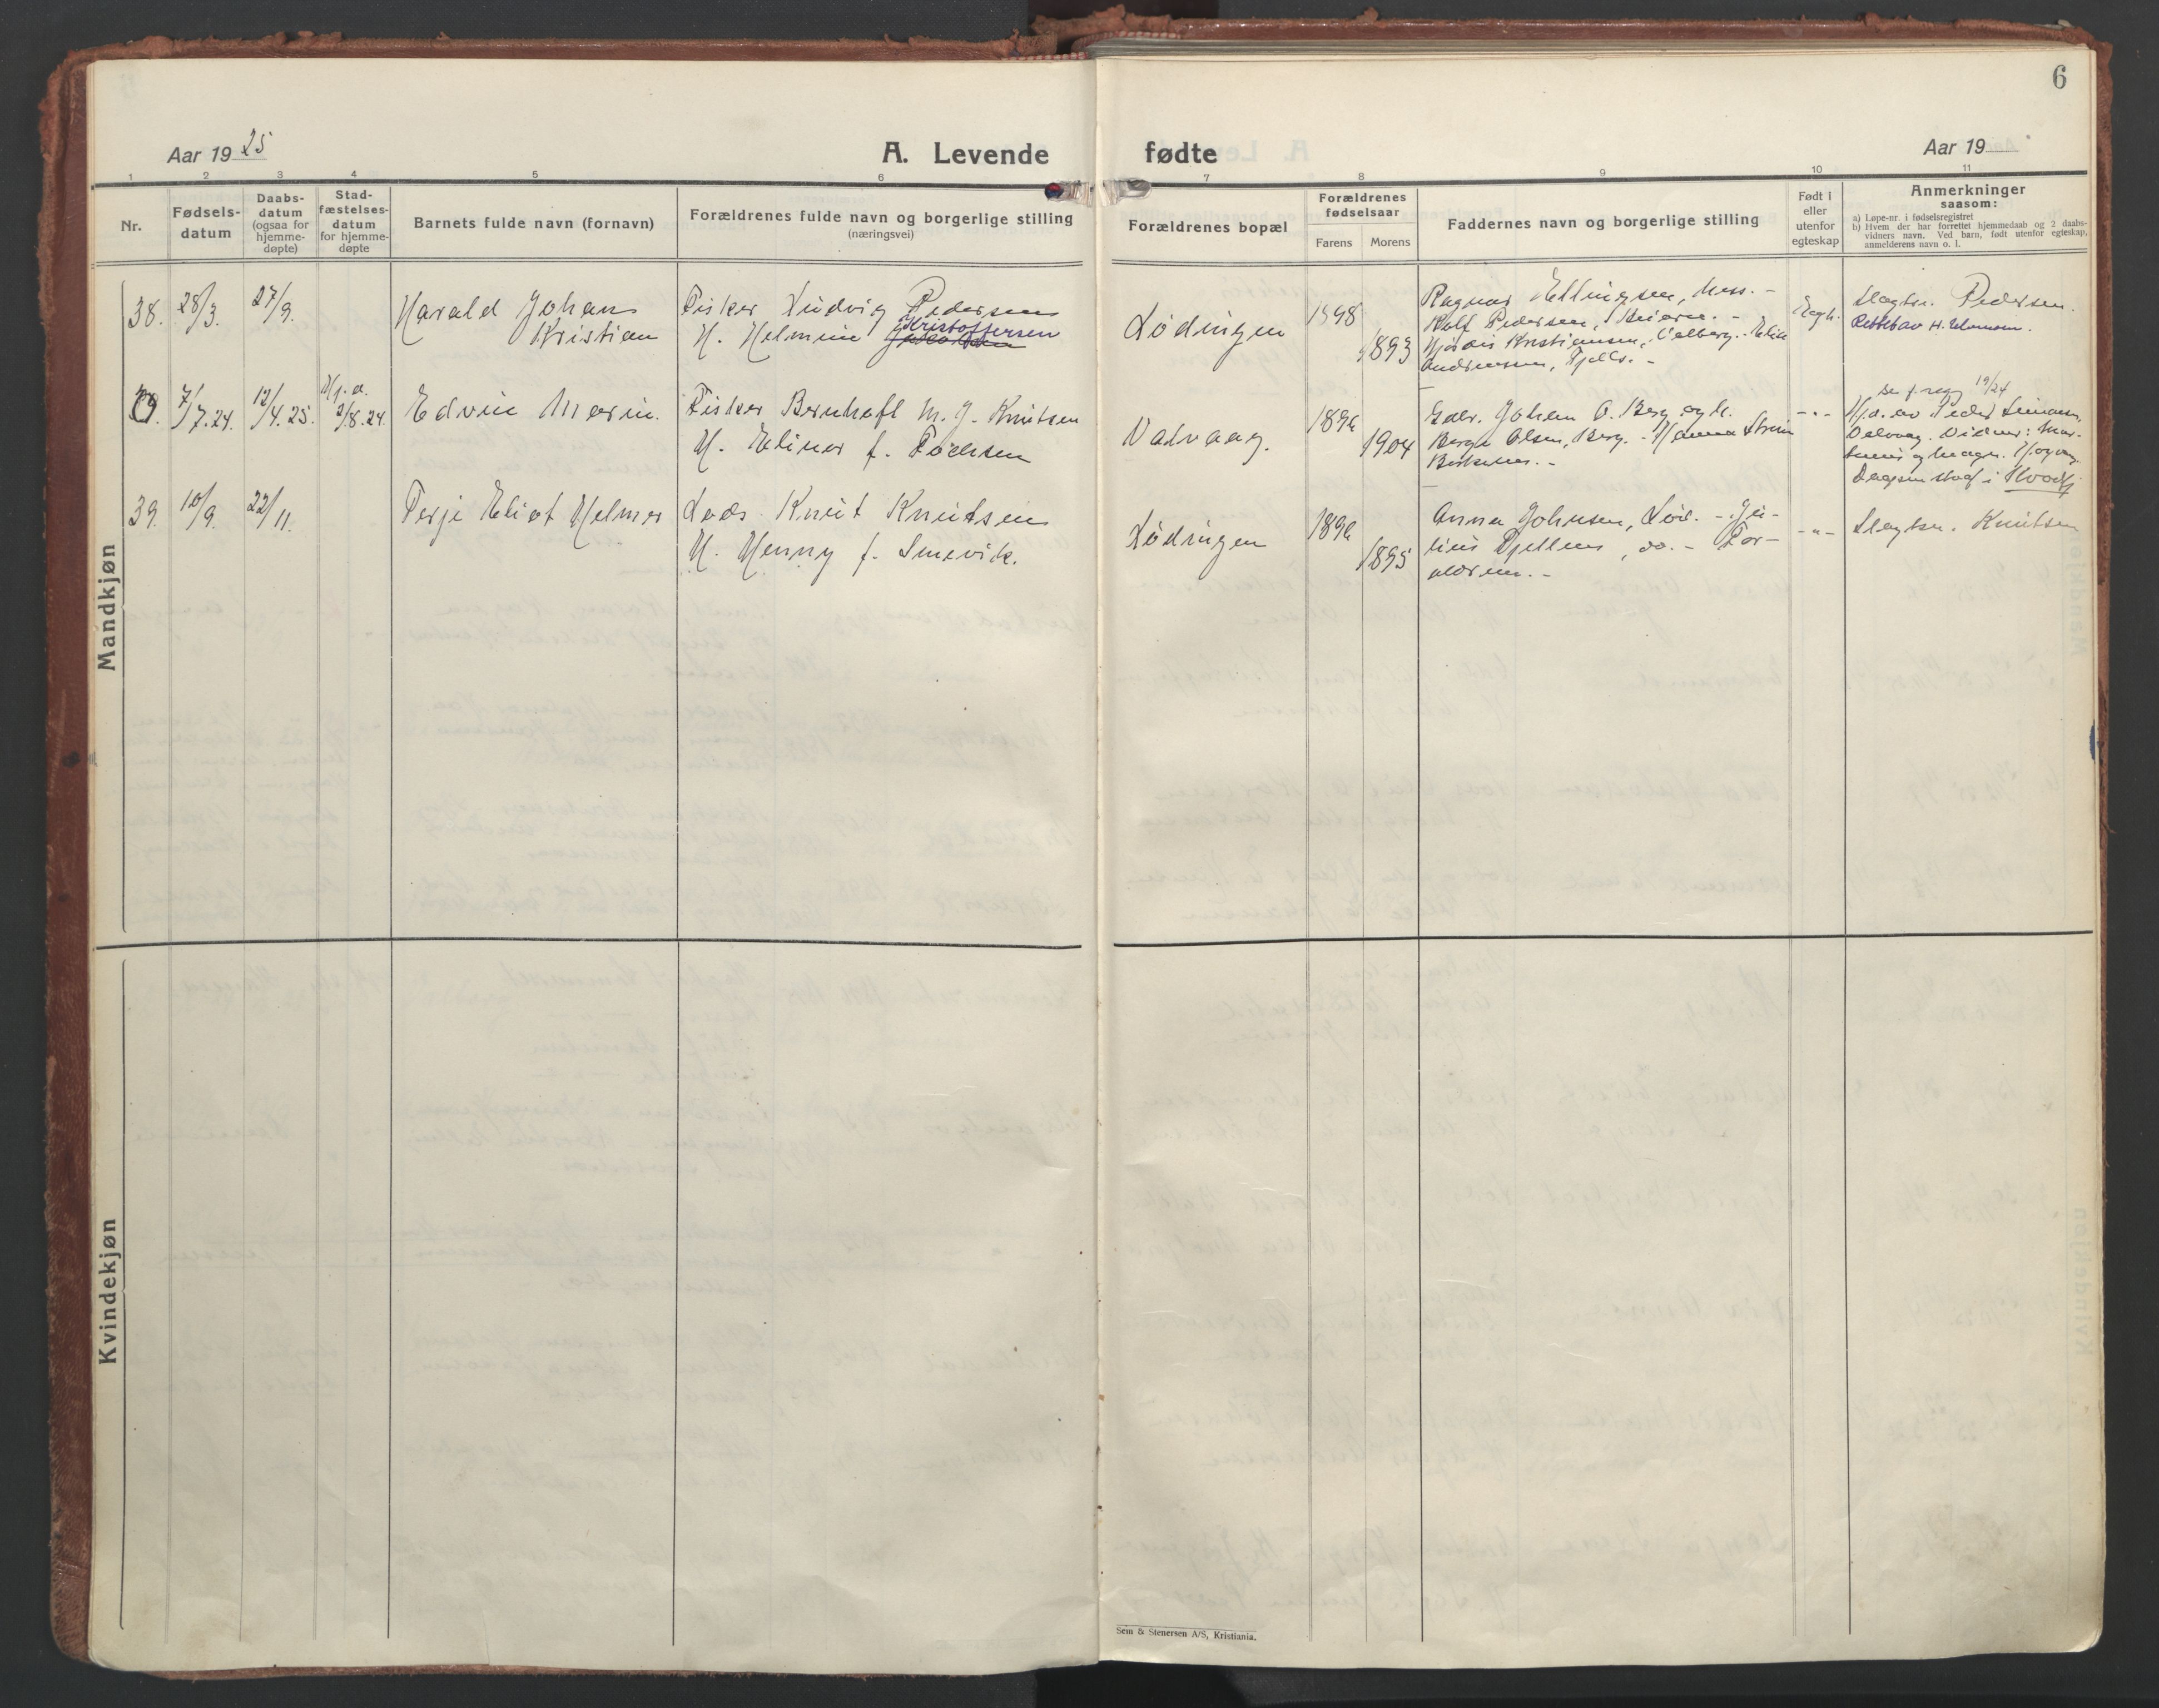 6
Aar 1925
A. Levende fødte
Aar 19
1 2 3 4 5 6 7 8 9 10 11
Nr.
Fødsels-
datum
Daabs-
datum
(ogsaa for
hjemme-
døpte)
Stad-
fæstelses-
datum
for hjemme-
døpte
Barnets fulde navn (fornavn)
Forældrenes fulde navn og borgerlige stilling
(næringsvei)
Forældrenes bopæl
Forældrenes
fødselsaar
Farens Morens
Faddernes navn og borgerlige stilling
Født i
eller
utenfor
egteskap
Anmerkninger
saasom:
a) Løpe-nr. i fødselsregistret
b) Hvem der har forrettet hjemmedaab og 2 daabs-
vidners navn. Ved barn, født utenfor egteskap,
anmelderens navn o. l.
Mandkjøn
38.
28/3.
27/9.
Harald Johan
Kristian
Fisker Ludvig Pedersen
Kristoffersen
H. Helmine
Lødingen
1898
1893
Ragnar Ellingsen, Ness. -
Rolf Pedersen, Beiern. -
Hjørdis Kristiansen,
Andreassen, Fjells. -
Egh.
Slegtsn. Pedersen.
Rettet av
7/7.24.
12/4.25.
Hj.d.
2/8.24.
Edvin Marin.
Fisker Bernhoft M. J. Knutsen
H. Elinor f.
Valvaag.
1896
1904
Gdbr. Johan O. Berg og h.
Borge Olsen, Berg. - Hanna
-"-
Se f.reg. 19/24
Hj.d. av Peder Simonsen,
Valvaag. Vidner: Mar-
39.
10/9.
22/11.
Terje Eliot Helmer
Lods Knut Knutsen
H. Henny f. Smevik.
Lødingen
1896
1895
Anna Johnsen, Lød. - Ju-
lius Fjellem, do. - For-
ældrene. -
-"-
Slegtsn. Knutsen
Kvindekjøn
Sem & Stenersen A/S, Kristiania.